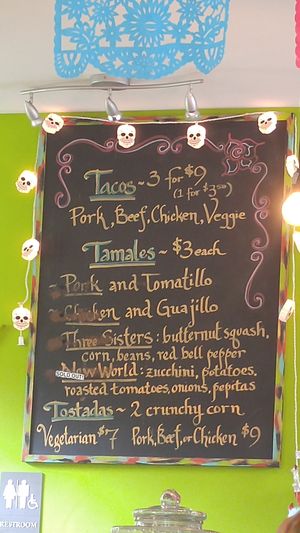 Tacos ~ 3 for $9
(1 for $3.50)
Pork, Beef, Chicken, Veggie
Tamales ~ $3 each
~ Pork and Tomatillo
~ Chicken and Guajillo
~ Three Sisters: butternut squash,
corn, beans, red bell pepper
SOLD OUT!
New World: zucchini, potatoes,
roasted tomatoes, onions, pepitas
Tostadas ~ 2 crunchy corn
Vegetarian $7 Pork, Beef, or Chicken $9
RESTROOM